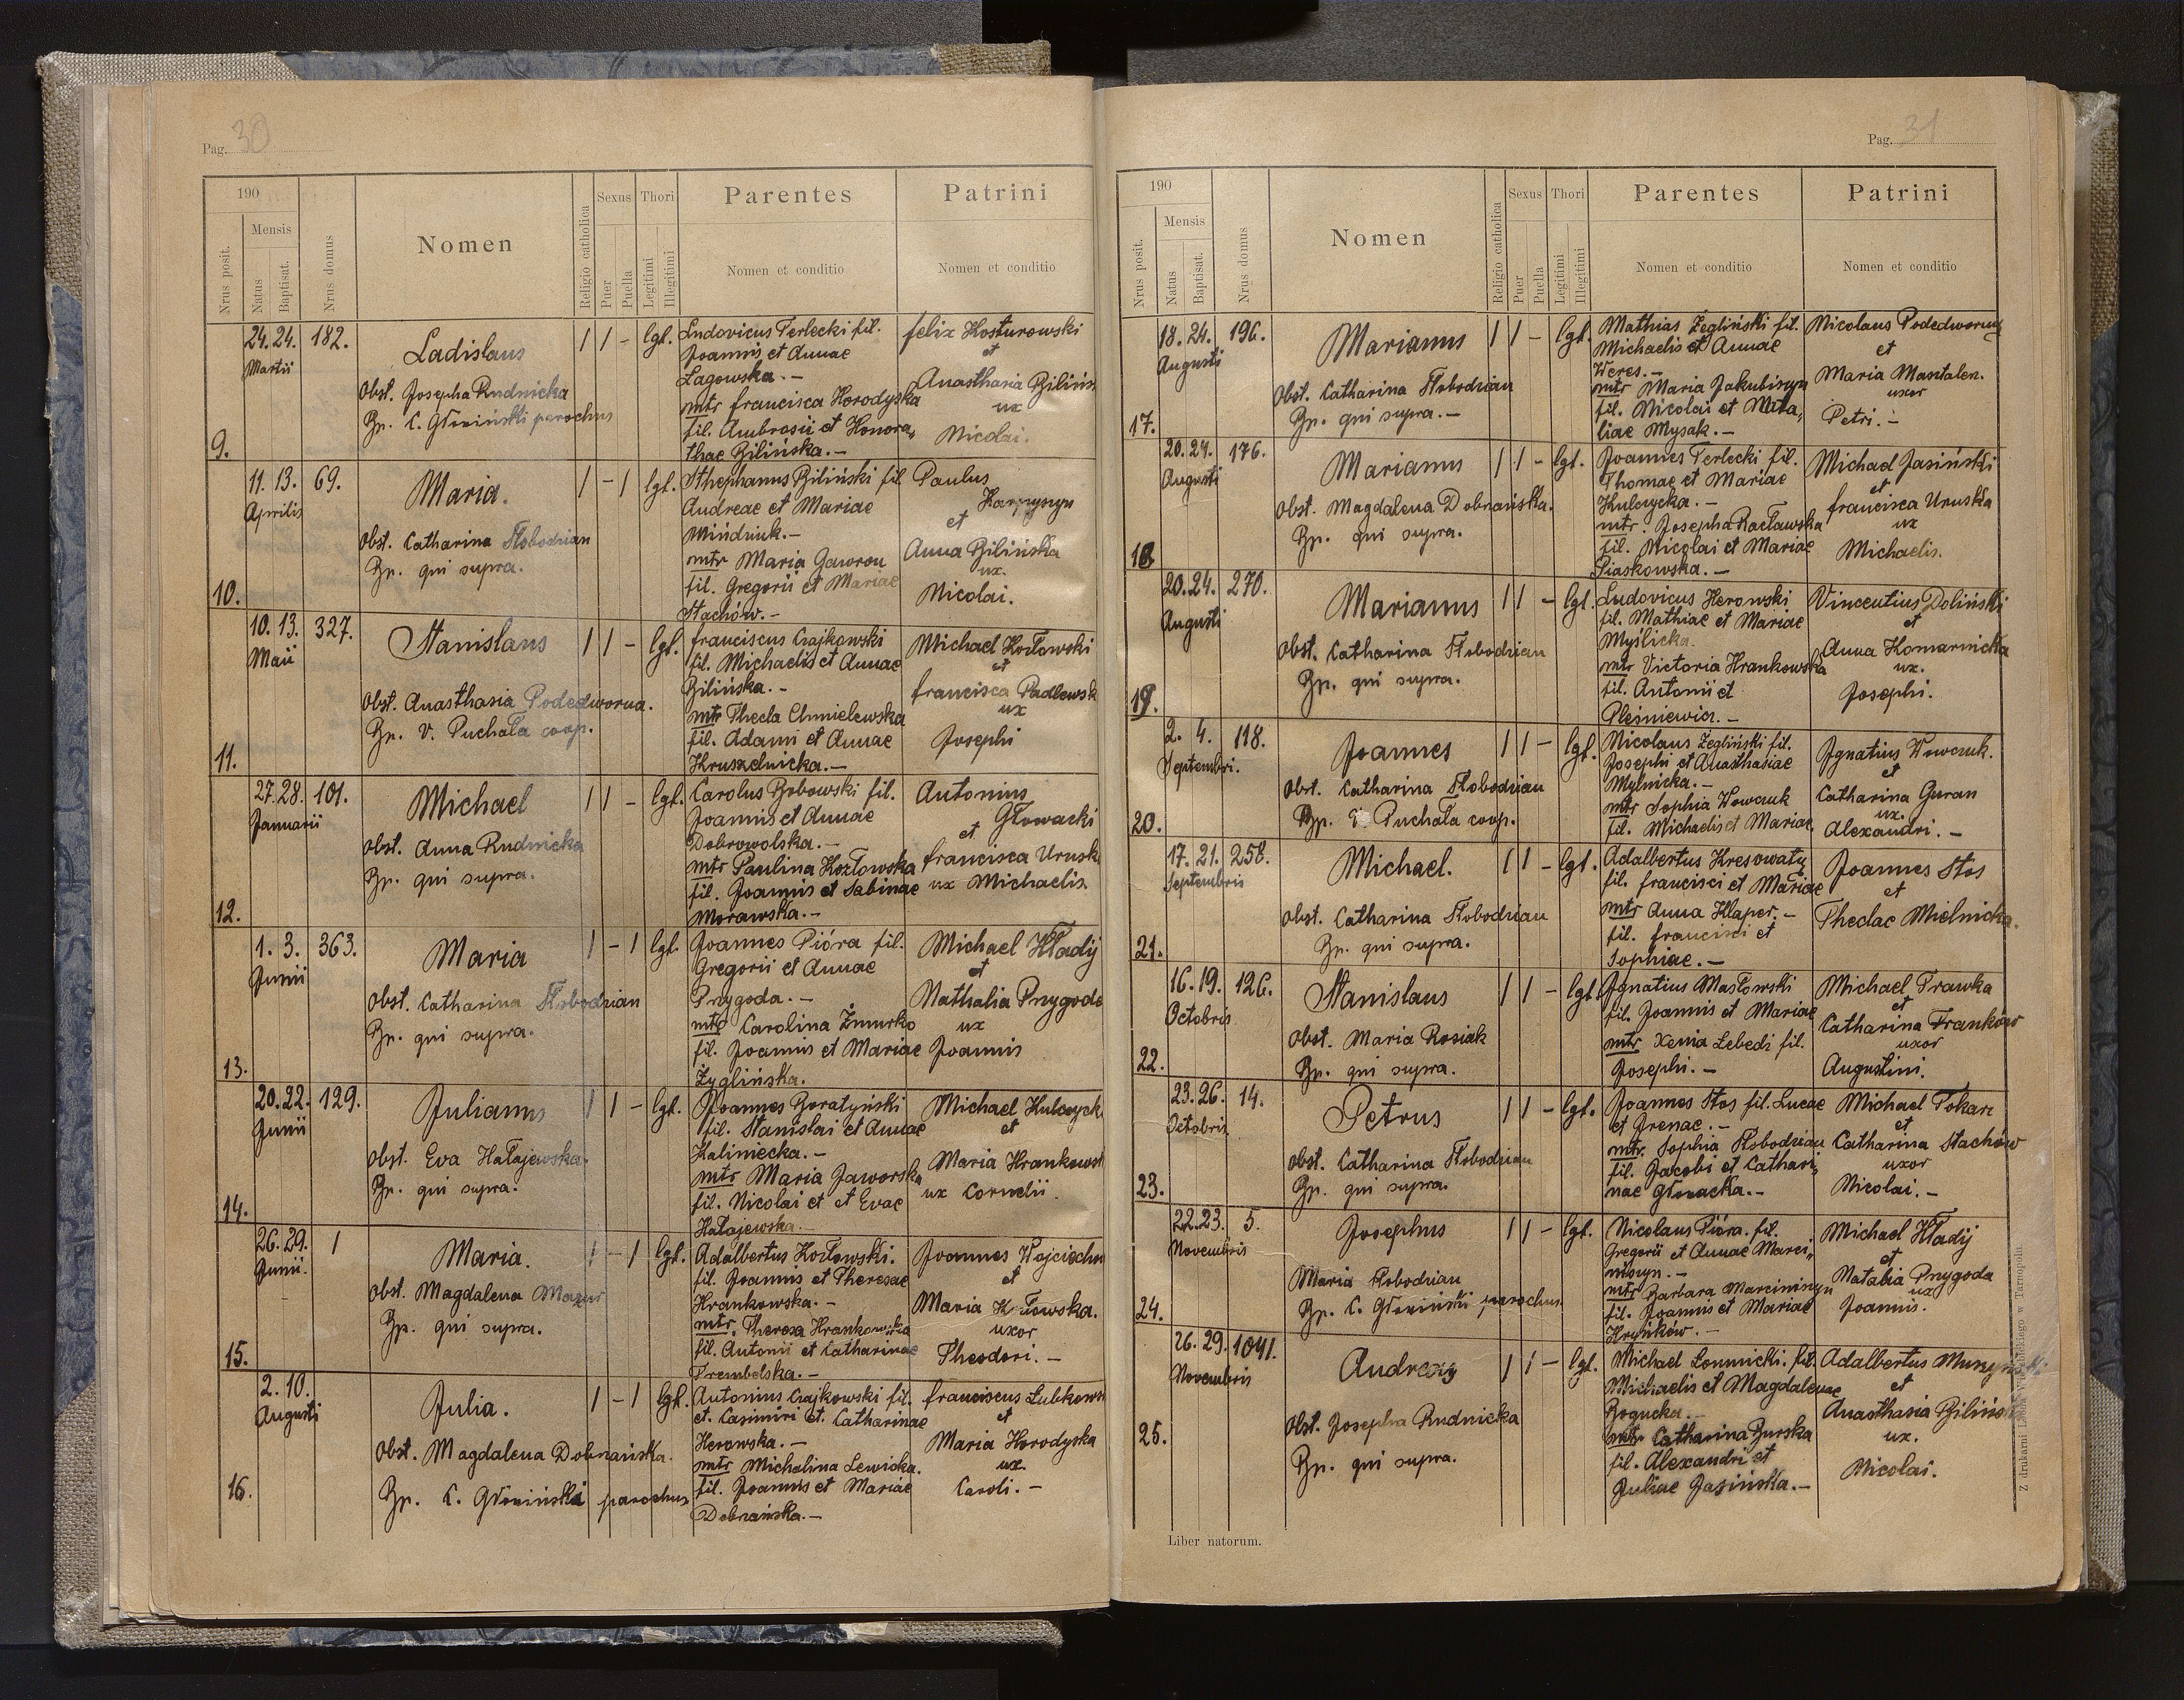 Pag. 30
190
Nrus posit.
Mensis
Natus
Baptisat.
Nrus domus
Nomen
Religio catholica
Sexus
Puer
Puella
Thori
Legitimi
Illegitimi
Parentes
Nomen et conditio
Patrini
Nomen et conditio
9.
24. 24. 182.
Martii
Ladislaus
Obst. Josepha Rudnicka
Bp. C. Głowiński parochus
1 1 - lgt.
Ludovicus Terlecki fil.
Joannis et Annae
Łagowska. -
mtr Francisca Horodyska
fil. Ambrosii et Honora„
thae Bilińska. -
Felix Kosturowski
et
Anasthasia Bilińs
ux
Nicolai.
10.
11. 13. 69.
Aprilis
Maria.
Obst. Catharina Słobodzian
Bp. qui supra.
1 - 1 lgt.
Sthephanus Biliński fil.
Andreae et Mariae
Mińdziuk. -
mtr Maria Gawron
fil. Gregorii et Mariae
Stachów. -
Paulus
Karpyszyn
et
Anna Bilińska
ux.
Nicolai.
11.
10. 13. 327.
Maii
Stanislaus
Obst. Anasthasia Podedworna.
Bp. V. Puchała coop.
1 1 - lgt.
Franciscus Czajkowski
fil. Michaelis et Annae
Bilińska. -
mtr Thecla Chmielewska
fil. Adami et Annae
Kruszelnicka. -
Michael Kozłowski
et
Francisca Padlewsk
ux
Josephi
12.
27. 28. 101.
Januarii
Michael
Obst. Anna Rudnicka
Bp. qui supra.
1 1 - lgt.
Carolus Bobowski fil.
Joannis et Annae
Dobrowolska. -
mtr Paulina Kozłowska
fil. Joannis et Sabinae
Morawska. -
Antonius
Głowacki
et
Francisca Urusk
ux Michaelis.
13.
1. 3. 363.
Junii
Maria
Obst. Catharina Słobodzian
Bp. qui supra.
1 - 1 lgt.
Joannes Pióra fil.
Gregorii et Annae
Przygoda. -
mtr Carolina Żmurko
fil. Joannis et Mariae
Żyglińska.
Michael Hładij
et
Nathalia Przygoda
ux
Joannis
14.
20. 22. 129.
Junii
Julianus
Obst. Eva Hałajewska.
Bp. qui supra.
1 1 - lgt.
Joannes Boratyński
fil. Stanislai et Annae
Kaliniecka. -
mtr Maria Jaworska
fil. Nicolai et et Evae
Hałajewska. -
Michael Kulczyck
et
Maria Hrankowsk
ux Cornelii.
15.
26. 29. 1
Junii.
Maria.
Obst. Magdalena Mazur
Bp. qui supra.
1 - 1 lgt.
Adalbertus Kozłowski.
fil. Joannis et Theresae
Hrankowska. -
mtr. Theresa Hrankowska
fil. Antonii et Catharinae
Trembelska. -
Joannes Wojciechu
et
Maria Kozłowska.
uxor
Theodori. -
16.
2. 10.
Augusti
Julia.
Obst. Magdalena Dobrzańska.
Bp. C. Głowiński parochus
1 - 1 lgt.
Antonius Czajkowski fil.
et. Casimiri et. Catharinae
Herowska. -
mtr Michalina Lewicka.
fil. Joannis et Mariae
Dobrzańska. -
Franciscus Łubkows
et
Maria Horodyska
ux.
Caroli. -
Pag. 31
190
Nrus posit.
Mensis
Natus
Baptisat.
Nrus domus
Nomen
Religio catholica
Sexus
Puer
Puella
Thori
Legitimi
Illegitimi
Parentes
Nomen et conditio
Patrini
Nomen et conditio
17.
18. 24. 196.
Augusti
Marianus
Obst. Catharina Słobodzian
Bp. qui supra. -
1 1 - lgt.
Mathias Żegliński fil.
Michaelis et Annae
Weres. -
mtr Maria Jakubiszyn
fil. Nicolai et Nata„
liae Mysak. -
Nicolaus Podedworny
et
Maria Masztalerz.
uxor
Petri. -
18
20. 24. 176.
Augusti
Marianus
Obst. Magdalena Dobrzańska.
Bp. qui supra.
1 1 - lgt.
Joannes Terlecki fil.
Thomae et Mariae
Kulczycka. -
mtr Josepha Racławska
fil. Nicolai et Mariae
Piaskowska. -
Michael Jasiński
et
Francisca Uruska
ux
Michaelis.
19.
20. 24. 270.
Augusti
Marianus
Obst. Catharina Słobodzian
Bp. qui supra.
1 1 - lgt.
Ludovicus Herowski
fil. Mathiae et Mariae
Myślicka.
mtr Victoria Hrankowska
fil. Antonii et
Pleśniewicz. -
Vincentius Doliński
et
Anna Komarnicka
ux.
Josephi.
20.
2. 4. 118.
Septembri.
Joannes
Obst. Catharina Słobodzian
Bp. V. Puchała coop.
1 1 - lgt.
Nicolaus Żegliński fil.
Josephi et Anasthasiae
Mylnicka. -
mtr Sophia Wowczuk
fil. Michaelis et Mariae
Ignatius Wowczuk.
et
Catharina Guran
ux.
Alexandri. -
21.
17. 21. 258.
Septembris
Michael.
Obst. Catharina Słobodzian
Bp. qui supra.
1 1 - lgt.
Adalbertus Kresowaty
fil. Francisci et Mariae
mtr Anna Hlaper. -
fil. Francisci et
Sophiae. -
Joannes Stos
et
Theclae Mielnicka.
22.
16. 19. 126.
Octobris
Stanislaus
Obst. Maria Rosiak
Bp. qui supra.
1 1 - lgt.
Ignatius Masłowski
fil. Joannis et Mariae
mtr Xenia Łebedź fil.
Josephi. -
Michael Trawka
et
Catharina Franków
uxor
Augustini.
23.
23. 26. 14.
Octobris
Petrus
Obst. Catharina Słobodzian
Bp. qui supra.
1 1 - lgt.
Joannes Stos fil. Lucae
et Irenae. -
mtr. Sophia Słobodzian
fil. Jacobi et Cathari„
nae Głowacka. -
Michael Tokarz
et
Catharina Stachów
uxor
Nicolai. -
24.
22. 23. 5.
Novembris
Josephus
Maria Słobodzian
Bp. C. Głowiński parochus.
1 1 - lgt.
Nicolaus Pióra. fil.
Gregorii et Annae Marci„
niszyn. -
mtr Barbara Marciniszyn
fil. Joannis et Mariae
Hryńków. -
Michael Hładij
et
Natalia Przygoda
ux
Joannis.
25.
26. 29. 1041.
Novembris
Andreas
Obst. Josepha Rudnicka
Bp. qui supra.
1 1 - lgt.
Michael Łomnicki. fil.
Michaelis et Magdalenae
Bogucka. -
mtr Catharina Burska
fil. Alexandri et
Juliae Jasińska. -
Adalbertus Muszyński
et
Anasthasia Bilińsk
ux.
Nicolai.
Liber natorum.
Z drukarni w Tarnopolu.